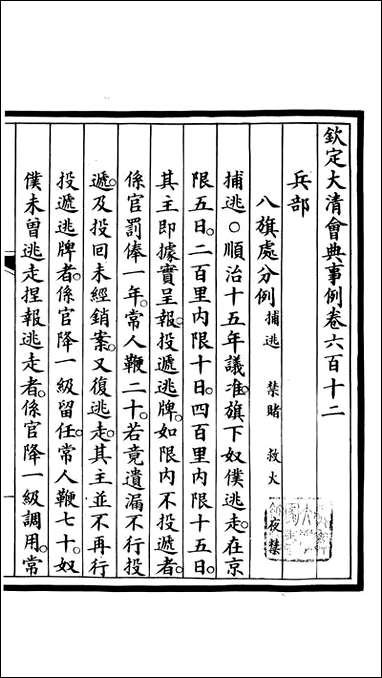 欽定大清會典事例卷六百十二
兵部
八旗處分例 捕逃 禁賭 救火 夜禁
捕逃○順治十五年議准。旗下奴僕逃走。在京
限五日。二百里內限十日。四百里內限十五日。
其主即據實呈報。投遞逃牌。如限內不投遞者。
係官罰俸一年。常人鞭二十。若竟遺漏不行投
遞。及投回未經銷案。又復逃走。其主並不再行
投遞逃牌者。係官降一級留任。常人鞭七十。奴
僕未曾逃走捏報逃走者。係官降一級調用。常